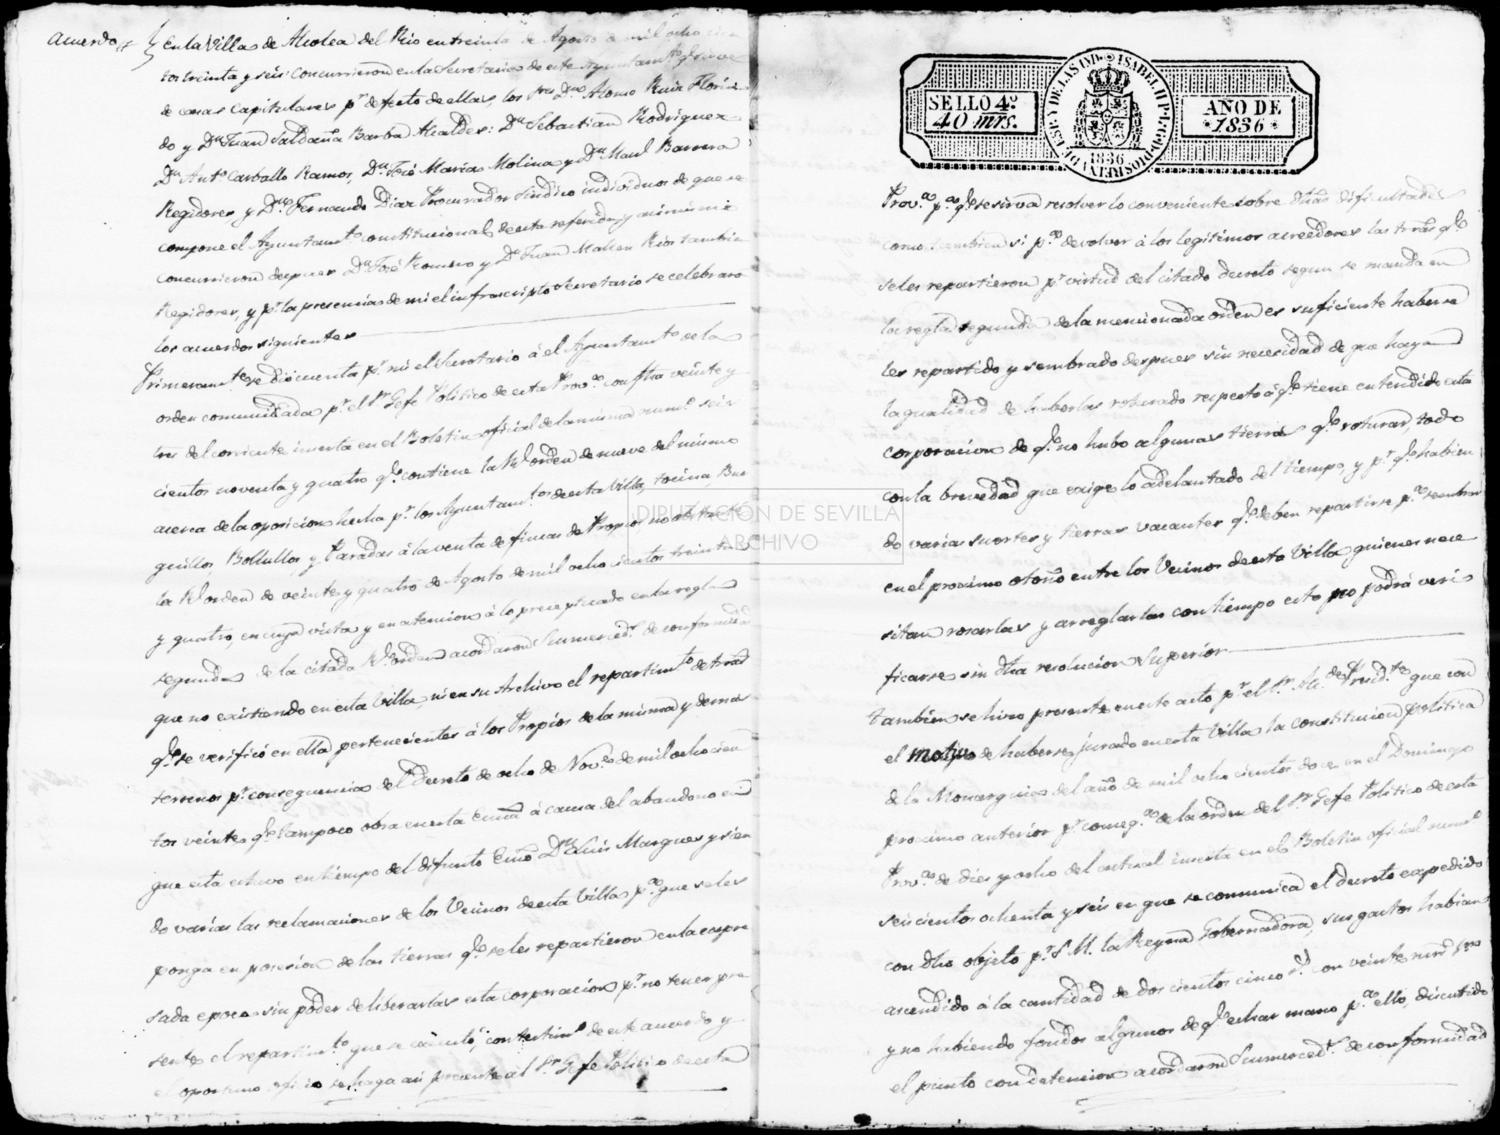 Acuerdo En la Villa de Alcolea del Rio en treinta de Agosto de mil ocho cien
tos treinta y seis concurrieron en la Secretaria de este Ayuntamto. qe. sirve
de casas Capitulares pr. defecto de ellas, los Sres. Dn. Alonso Ruiz Florin
do y Dn. Juan Saldaña Barba Alcaldes: Dn. Sebastian Rodriguez
Dn. Anto. Carballo Ramos, Dn. José Maria Molina y Dn. Manl. Barrera
Regidores, y Dn. Fernando Diaz Procurador Sindico individuos de que se
compone el Ayuntamto. constitucional de esta referida, y asimismo
concurrieron despues Dn. José Romero y Dn. Juan Malien Rios tambien
Regidores, y pr. la presencia de mi el infrascripto Secretario se celebraron
los acuerdos siguientes
Primeramte. se dio cuenta pr. mi el Secretario á el Ayuntamto. de la
orden comunicada pr. el Sr. Gefe Politico de esta Prova. con fha veinte y
tres del corriente inserta en el Boletin oficial de la misma numo. seis
cientos noventa y quatro qe. contiene la Rl. orden de nueve del mismo
acerca de la oposicion hecha pr. los Ayuntamtos. de esta Villa, tocina, Bur
guillos, Bollullos, y Paradas á la venta de fincas de Propios, no obstante
la Rl. orden de veinte y quatro de Agosto de mil ocho cientos treinta
y quatro, en cuya vista y en atencion á lo preceptuado en la regla
segunda de la citada Rl. orden acordaron Sus mercedes. de conformidad
que no existiendo en esta Villa, ni en su Archivo el repartimto. de trras
qe. se verificó en ella pertenecientes á los Propios de la misma y demas
terrenos pr. consequencia del Decreto de ocho de Novre. de mil ocho cien
tos veinte, qe. tampoco obra en esta Essna á causa del abandono en
que esta estuvo en tiempo del difunto Essno Dn. Luis Marques y sien
do varias las reclamaciones de los Vecinos de esta Villa pa. que se les
ponga en posesion de las tierras qe. se les repartieron en la expre
sada epoca sin poder deliberarlas esta corporacion pr. no tener pre
sente el repartimto. que se egecutó, con testimo. de este acuerdo y
el oportuno oficio se haga asi presente al Sr. Gefe Politico de esta
SELLO 4º
40 mrs.
ISABEL II P. L. G. D. DIOS REYNA DE ESP. Y DE LAS IND.
1836
AÑO DE
1836
Prova. pa. qe. se sirva resolver lo conveniente sobre dhas dificultades
como tambien si pa. devolver á los legitimos acreedores las trras qe.
se les repartieron pr. virtud del citado decreto segun se manda en
la regla segunda de la mencionada orden es suficiente haberse
les repartido y sembrado despues sin necesidad de que haya
la qualidad de haberlas roturado respecto á qe. tiene entendido esta
corporacion de qe. no hubo algunas tierras qe. roturar, todo
con la brevedad que exige lo adelantado del tiempo, y pr. qe. habien
do varias suertes y tierras vacantes qe. deben repartirse pa. sembrar
en el procsimo otoño entre los Vecinos de esta Villa, quienes nece
sitan rosarlas y arreglarlas con tiempo esto no podrá veri
ficarse sin dha resolucion Superior
tambien se hizo presente en este acto pr. el Sr. Ale. Presidte. que con
el motivo de haberse jurado en esta Villa la constitucion politica
de la Monarquia del año de mil ocho cientos doce en el Domingo
procsimo anterior pr. conseqa. de la orden del Sr. Gefe Politico de esta
Prova. de dies y ocho del actual inserta en el Boletin oficial numo.
seiscientos ochenta y seis en que se comunica el decreto expedido
con dho objeto pr. S. M. la Reyna Gobernadora, sus gastos habian
ascendido á la cantidad de dos cientos cinco rs. con veinte mrs vn
y no habiendo fondos algunos de qe. echar mano pa. ello, discutido
el punto con detencion acordaron Sus mercedes. de conformidad
DIPUTACIÓN DE SEVILLA
ARCHIVO